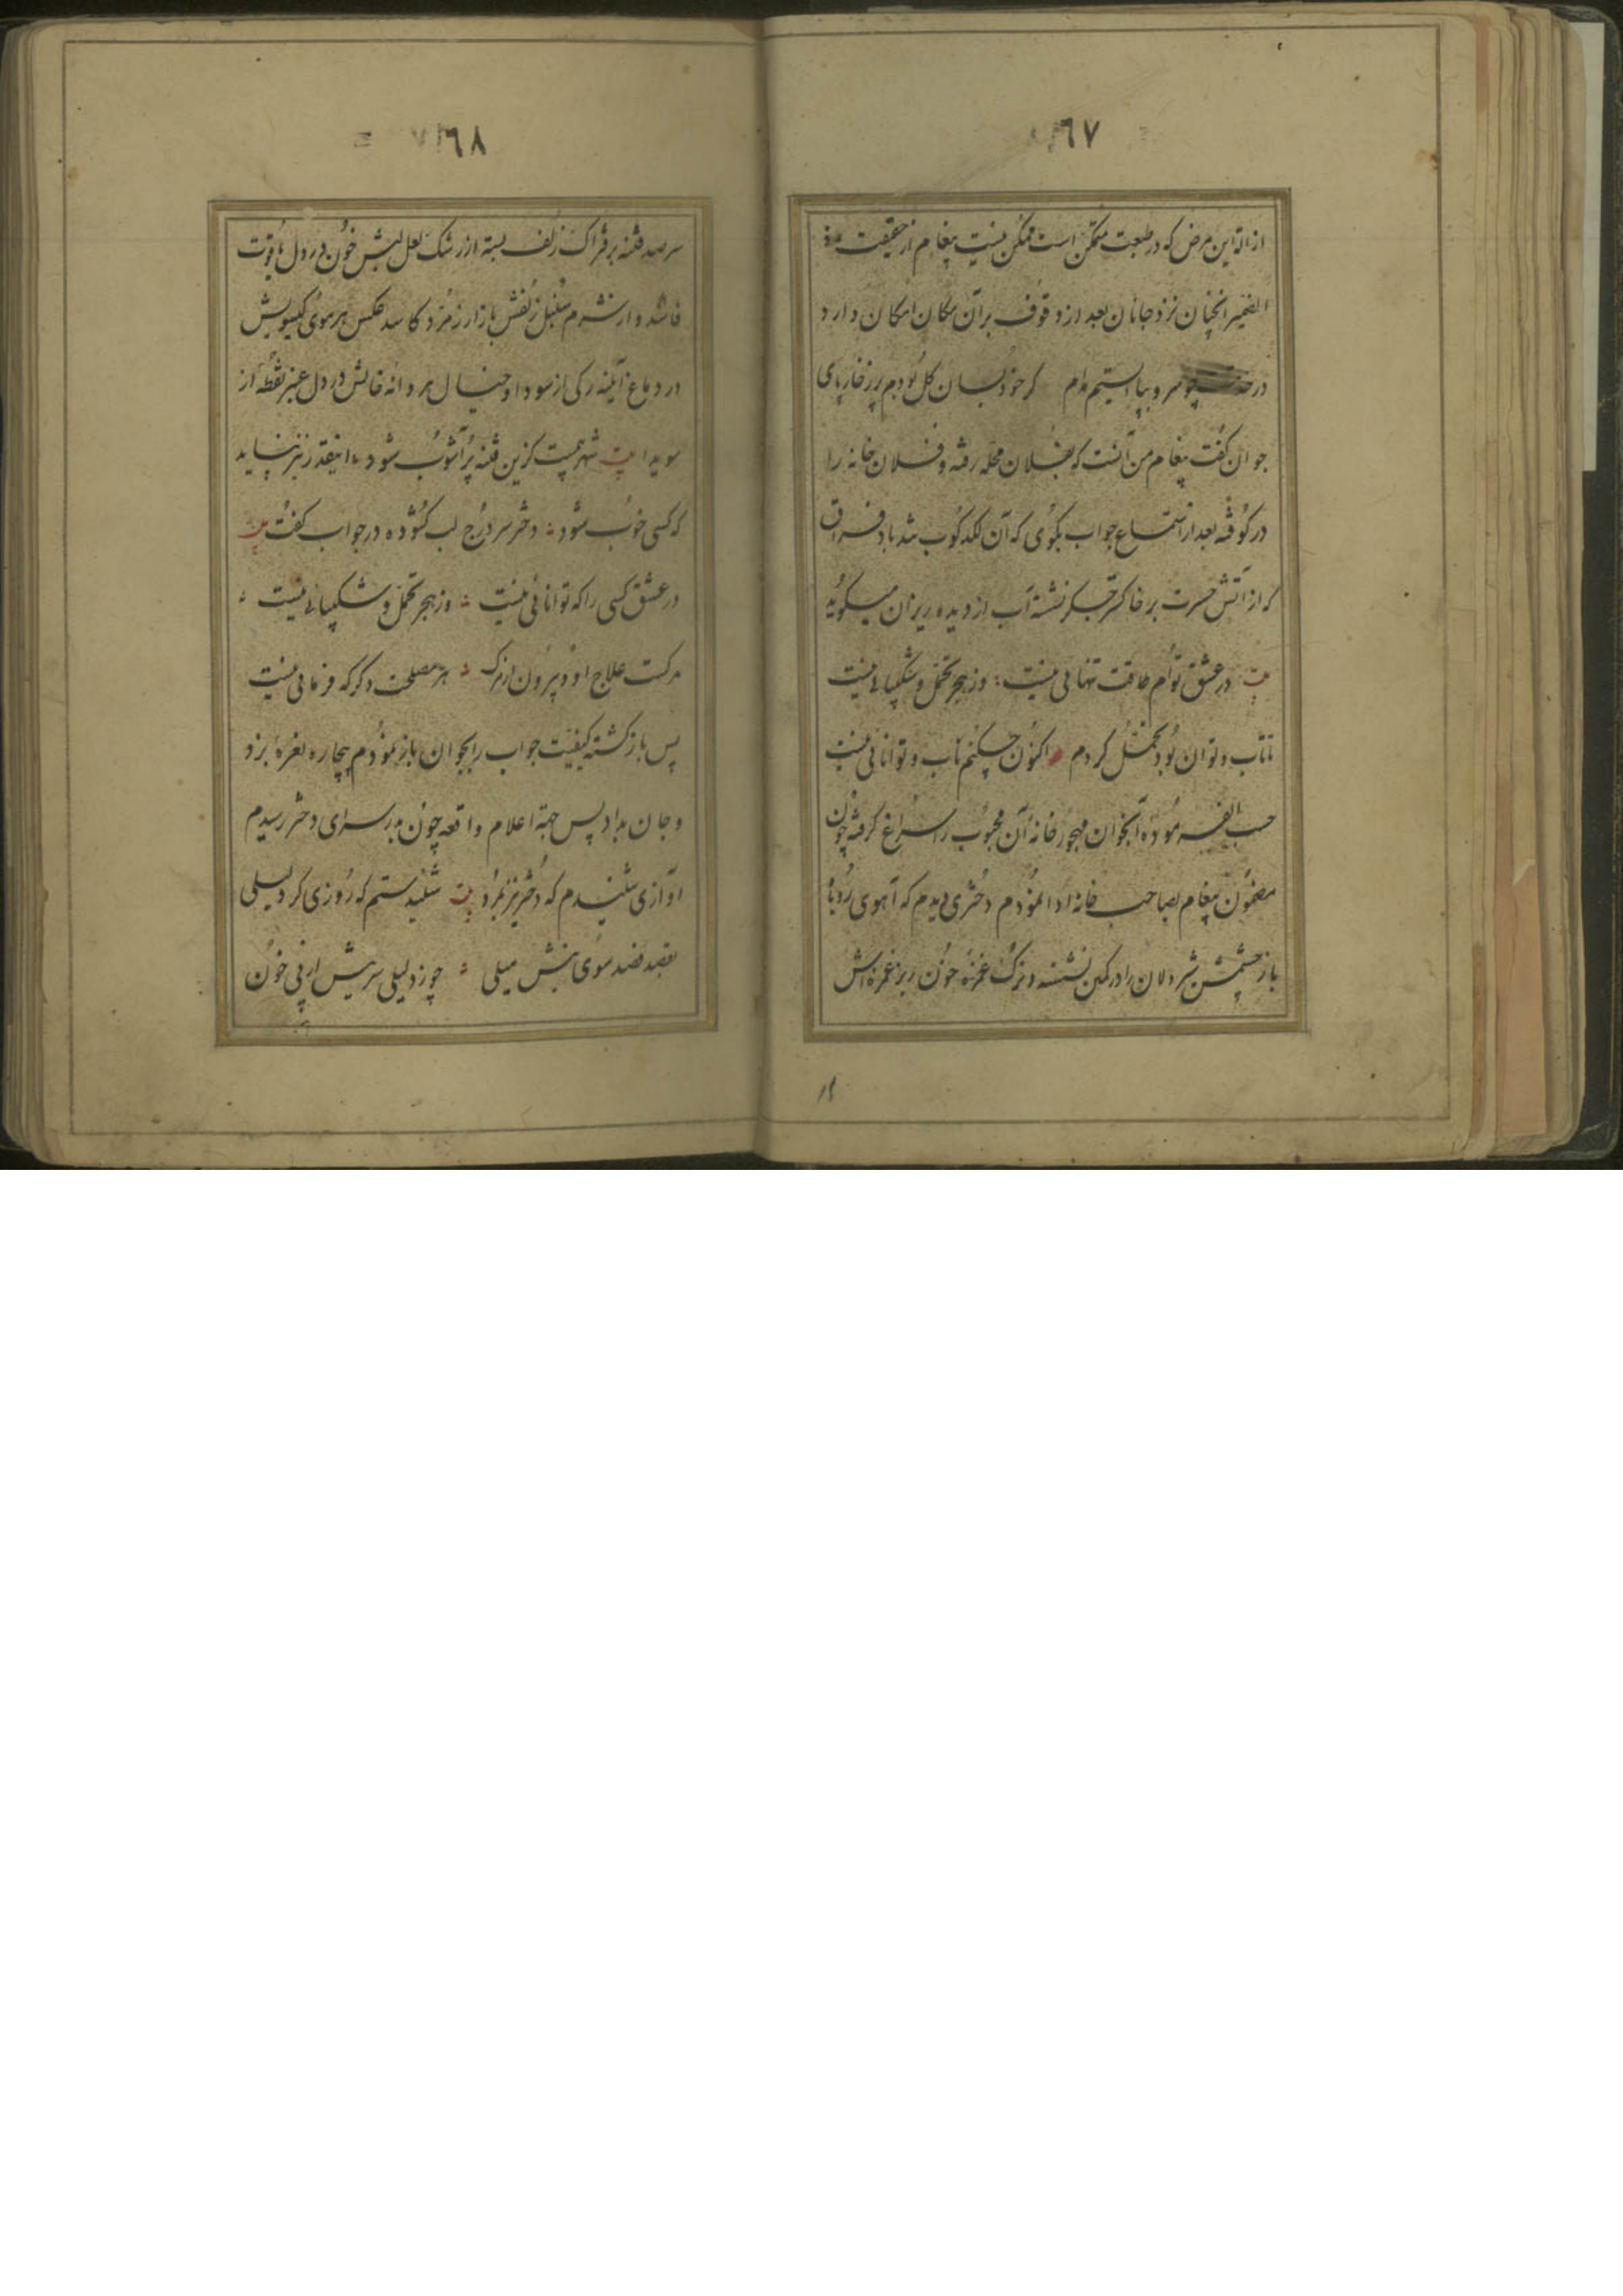 ٦٧
ازالة این مرض که در طبیعت متمکن است ممکن نیست پیغام از حقیقت مافی
الضمیر انچنان نزد جانان بعد از وقوف بر آن مکان امکان دارد
در چو سرو بپا ایستیم مدام گر خود بسان گل بودم پر ز خار پای
جوان گفت پیغام من آنست که بفلان محله رفته و فلان خانه را
در کوفته بعد از استماع جواب بگوی که آن لکدکوب شداد فراق
که از آتش حسرت بر خاکستر جگر نشسته آب از دیده ریزان میگوید
بیت در عشق توأم طاقت تنهائی نیست وز هجر تحمل و شکیبائی نیست
تا تاب و توان بود تحمل کردم اکنون چکنم تاب و توانائی نیست
حسب الفرموده آنجوان مهجور خانۀ آن محبوب را سراغ گرفته چون
مضمون پیغام بصاحب خانه ادا نمودم دختری دیدم که آهوی روباه
باز چشمش شیردلان را در کمین نشسته و ترک غمزۀ خون ریز غمزه‌اش
٦٨
سر صد فتنه بر فتراک زلف بسته از رشک لعل لبش خون در دل یاقوت
فاشد و از شرم سنبل زلفش بازار زمرد کاسد عکس هر موی گیسویش
در دماغ آینه رگی از سودا و خیال هر دانه خالش در دل عنبر نقطۀ از
سویدا بیت شهریست کزین فتنه پر آشوب شود اینقدر نیز نباید
که کسی خوب شود دختر سر درج لب گشوده در جواب گفت بیت
در عشق کسی را که توانائی نیست وز هجر تحمل و شکیبائی نیست
مرگست علاج او و بیرون از مرگ هر مصلحت دگر که فرمائی نیست
پس بازگشته کیفیت جواب را بجوان باز نمودم بیچاره نعرۀ بزد
و جان بداد پس جهة اعلام واقعه چون بدر سرای دختر رسیدم
آوازی شنیدم که دختر نیز بمرد بیت شنیدستم که روزی کرد لیلی
بقصد فصد سوی نیش میلی چو زد لیلی سر نیش از پی خون